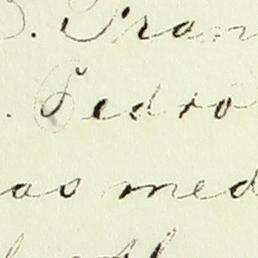 . Fran
. Pedro
as med